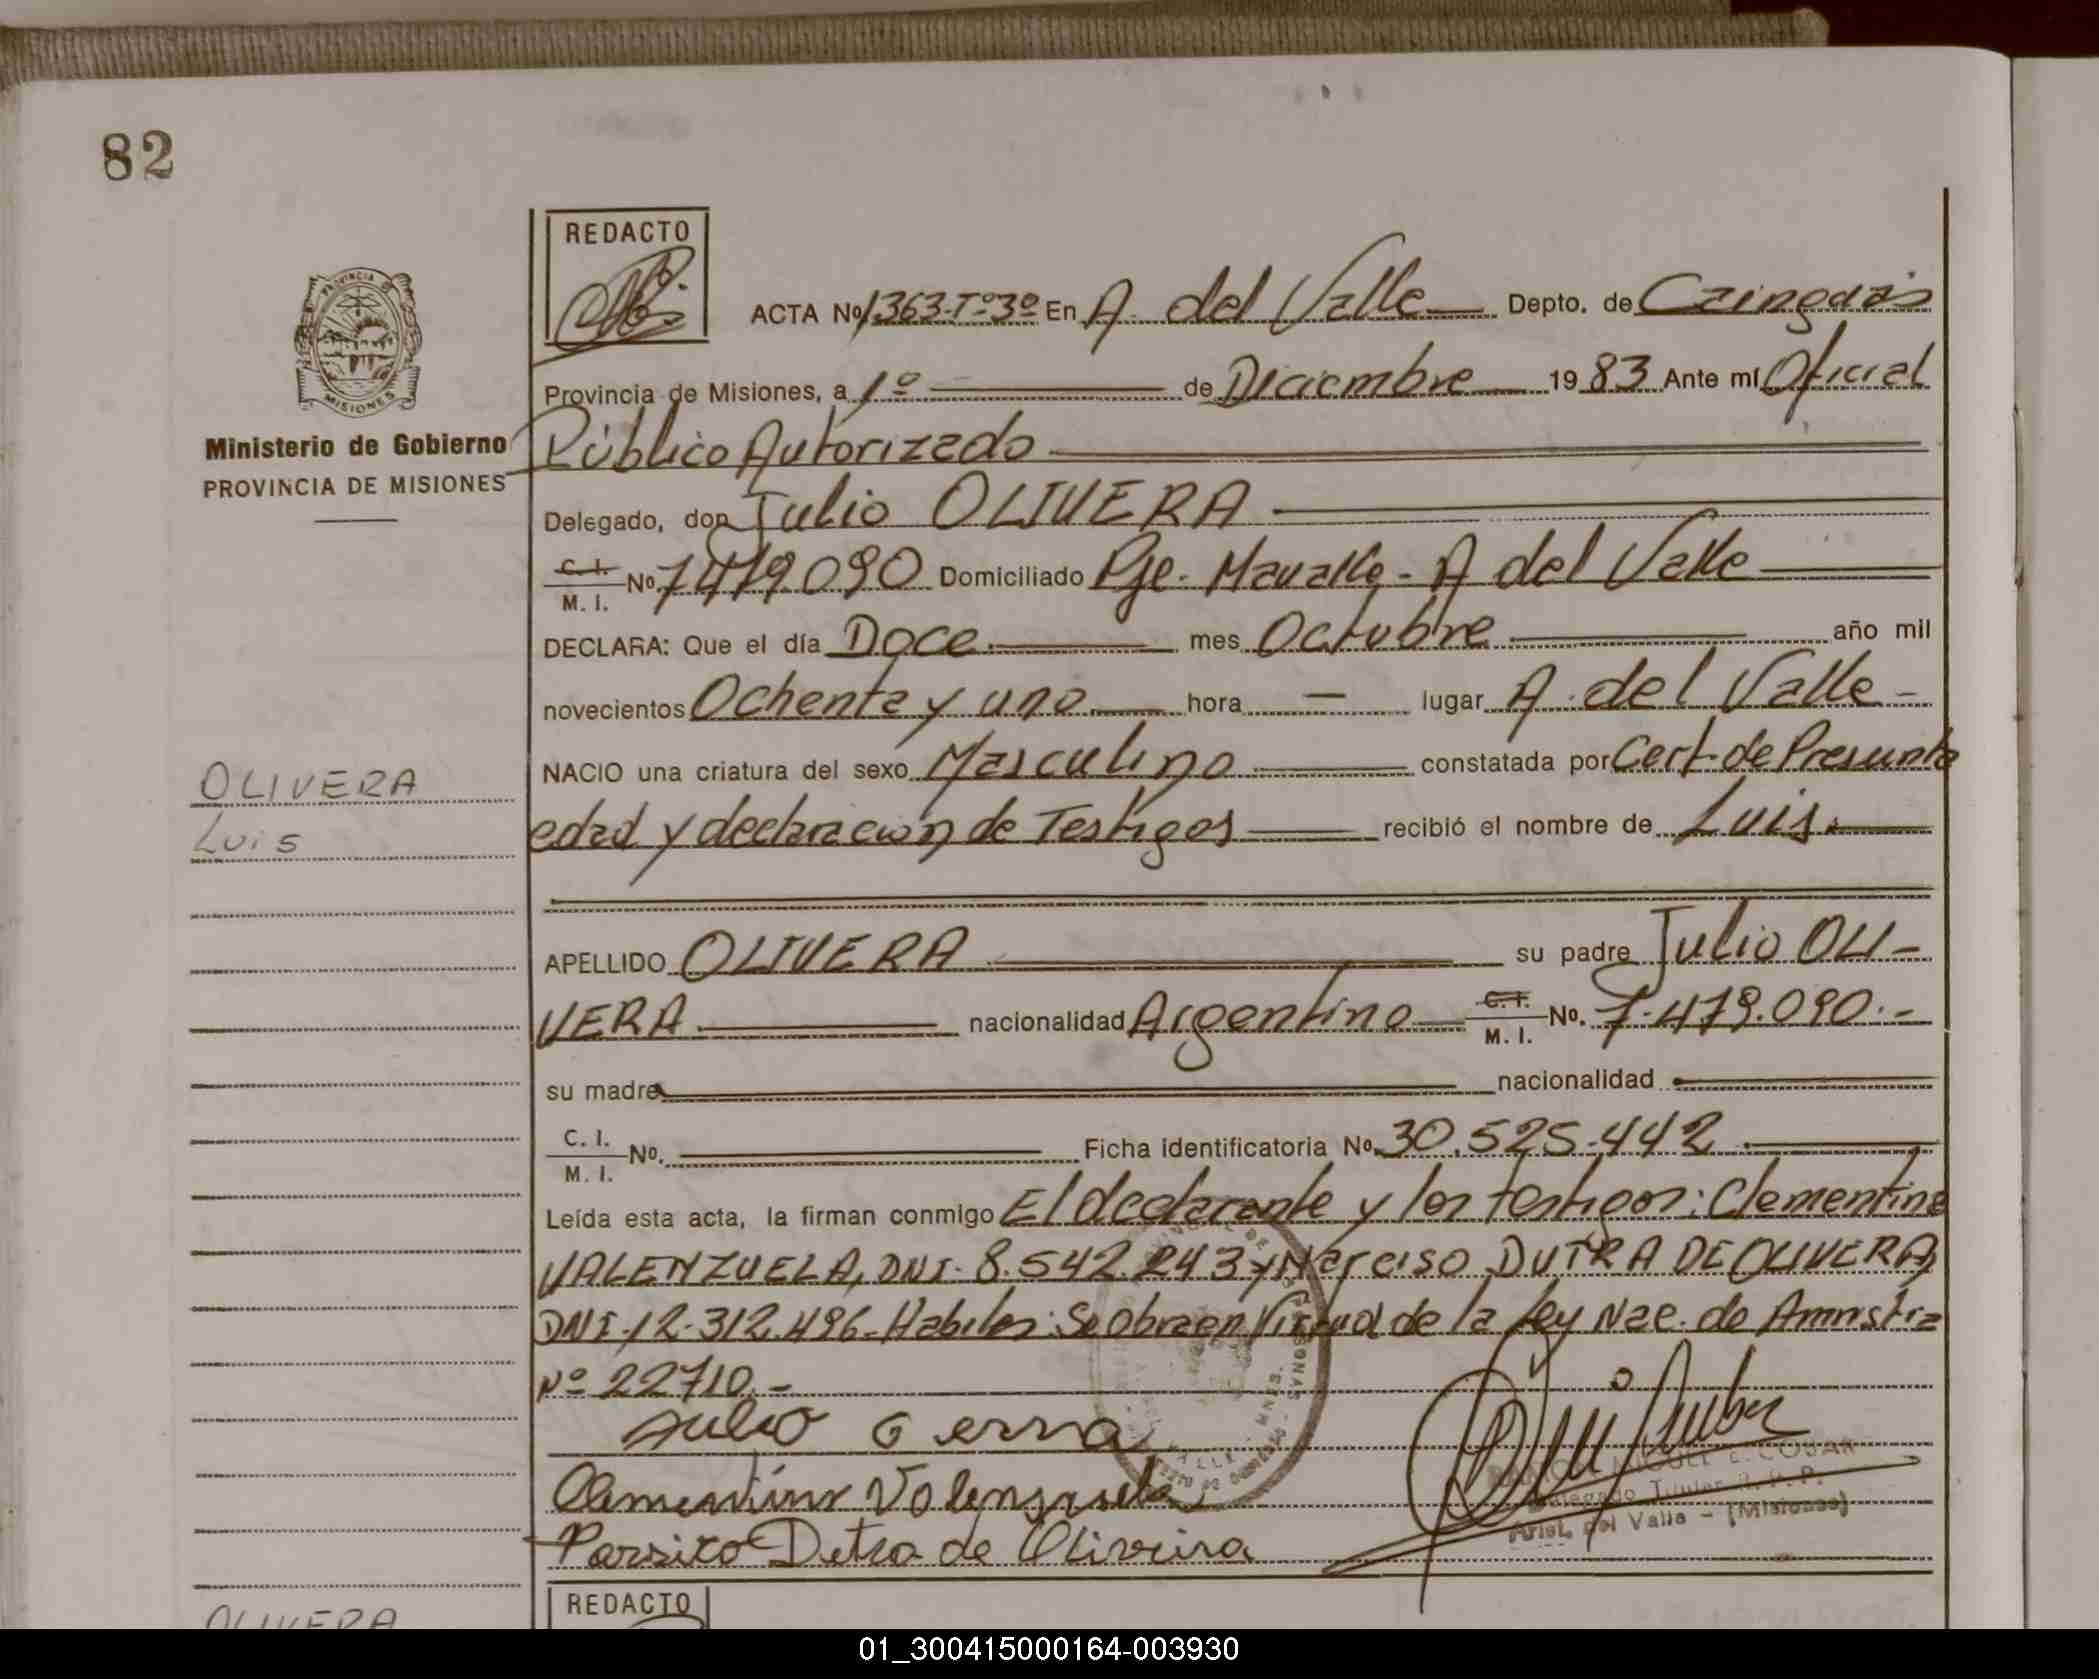 82
REDACTO
ACTA Nº 1363-Tº3º En A. del Valle Depto. de Cainguás
Provincia de Misiones, a 1º de Diciembre 1983 Ante mí Oficial
Público Autorizado
PROVINCIA
MISIONES
Ministerio de Gobierno
PROVINCIA DE MISIONES
Delegado, don Julio OLIVERA
C. I. M. I. Nº 7479.090 Domiciliado Pje. Mavalle - A del Valle
DECLARA: Que el día Doce mes Octubre año mil
novecientos Ochenta y uno hora — lugar A. del Valle -
NACIO una criatura del sexo Masculino constatada por Cert. de Presunta
edad y declaracion de Testigos recibió el nombre de Luis.
OLIVERA
Luis
APELLIDO OLIVERA su padre Julio OLI-
VERA nacionalidad Argentino C. I. M. I. Nº. 7.479.090.-
su madre nacionalidad
C. I. M. I. Nº. Ficha identificatoria Nº 30.525.442
Leída esta acta, la firman conmigo El declarante y los testigos: Clementino
VALENZUELA, DNI. 8.542.243 y Narciso DUTRA DE OLIVERA,
DNI.12.312.496. Habiles: Se obra en Virtud de la Ley Nac. de Amnistia
Nº 22710.-
Clementino Valenzuela
Detra de Oliveira
RAMON MIGUEL E. COSAR
Delegado Titular R. P. P.
Arist. del Valle - (Misiones)
REDACTO
OLIVERA
01_300415000164-003930